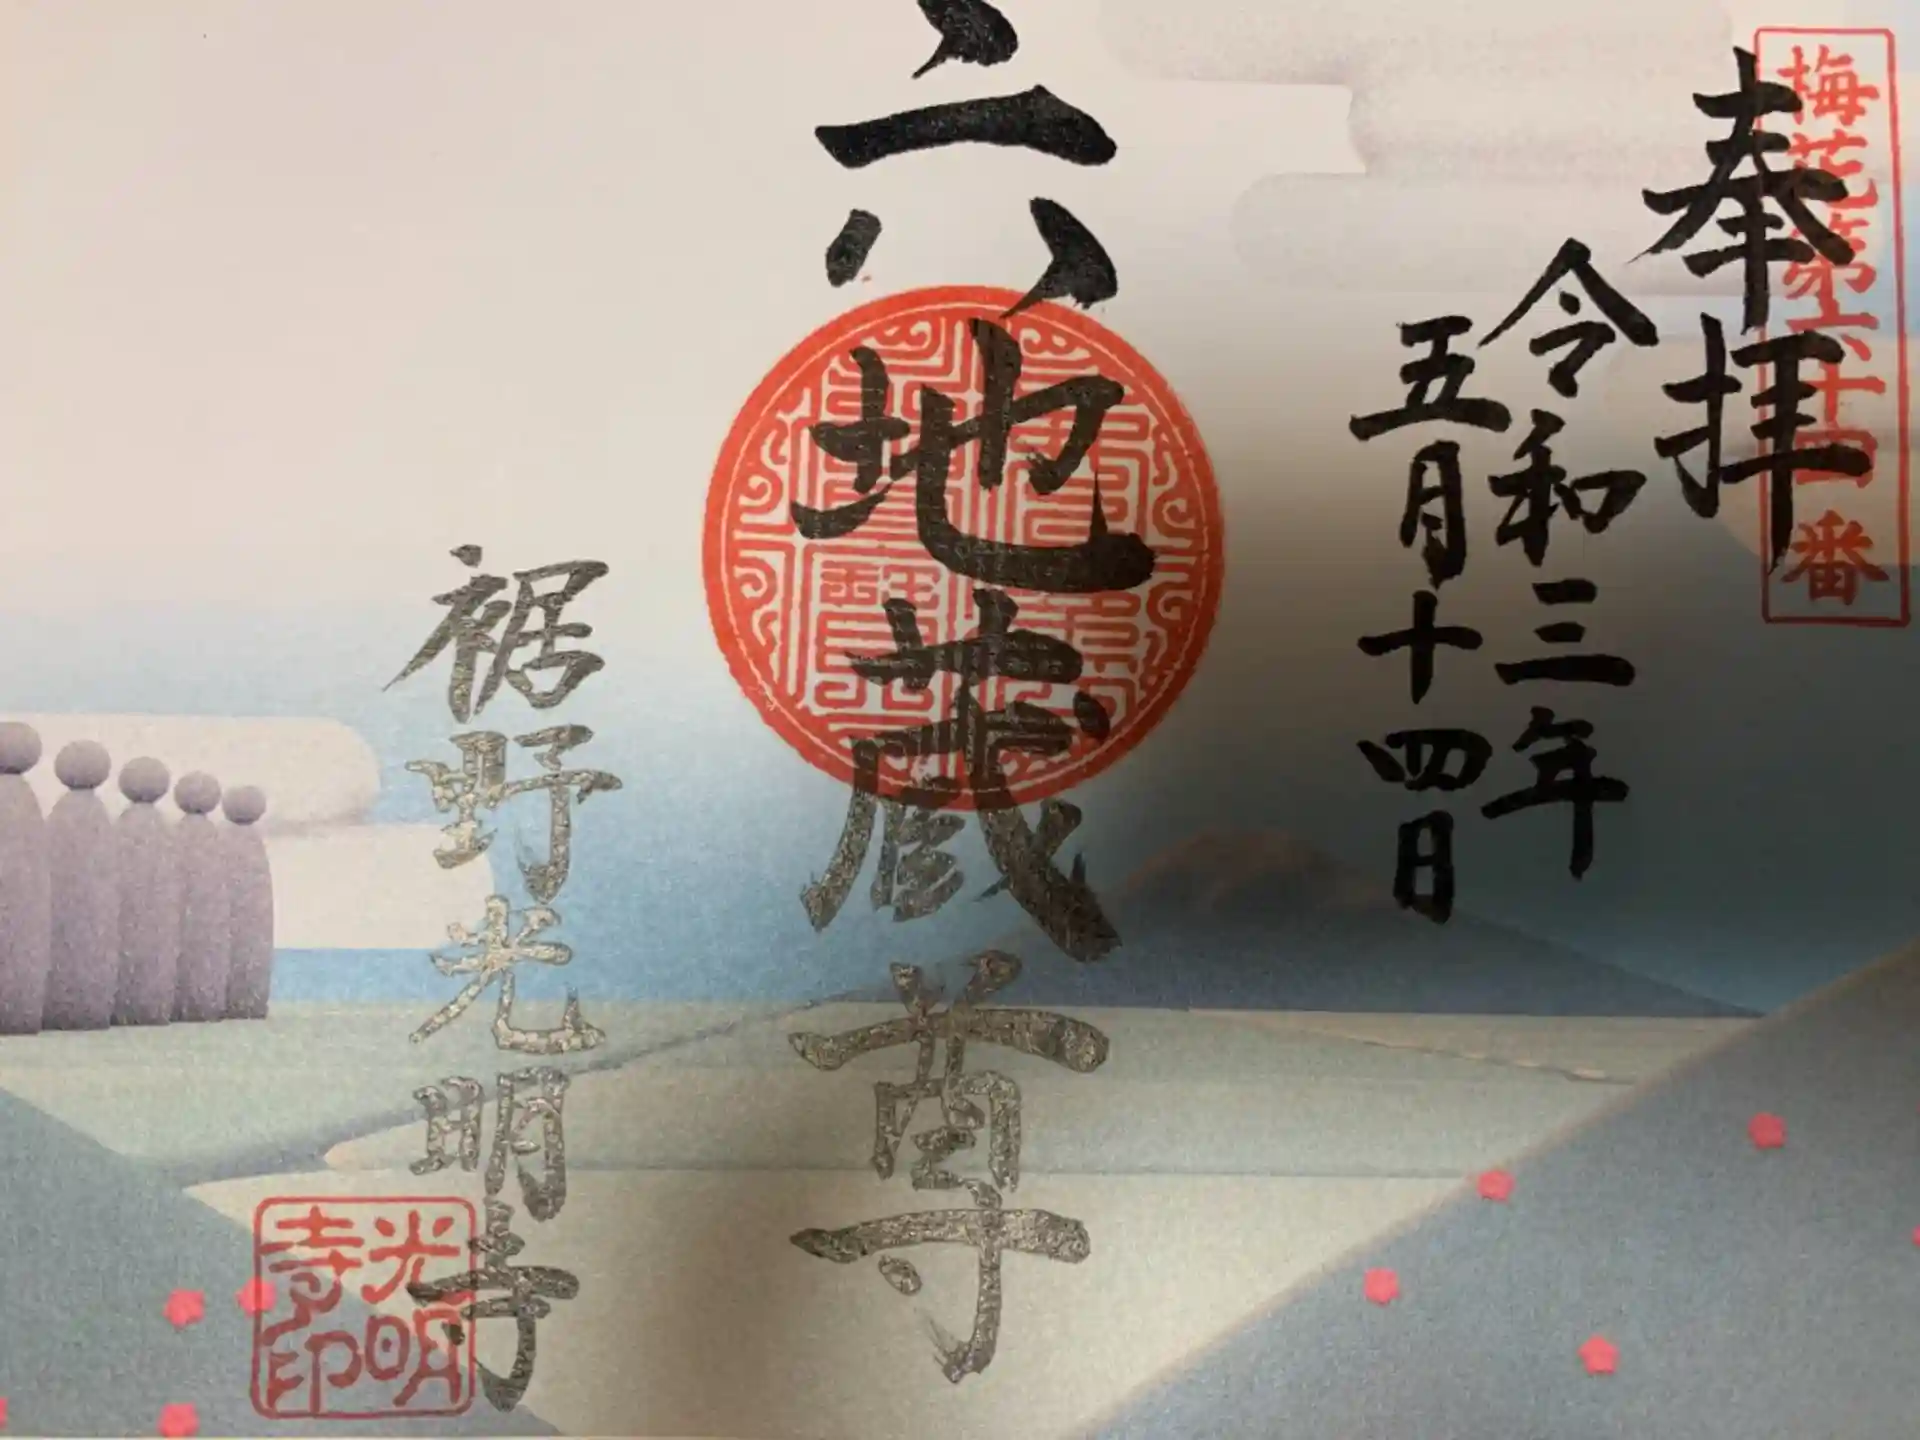 梅花第六十四番
奉拝
令和三年
五月十四日
六地蔵尊
裾野光明寺
光明
寺印